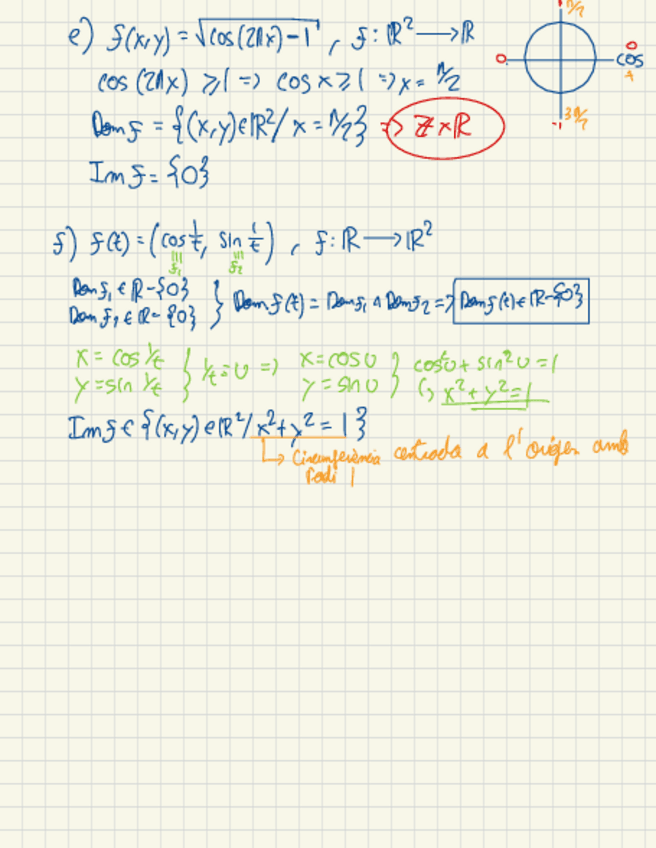 e) f(x,y) = √(cos(2πx)-1) , f: ℝ² → ℝ
cos(2πx) ≥ 1 => cos x ≥ 1 => x = π/2
Dom f = {(x,y) ∈ ℝ² / x = π/2} => ℤ x ℝ
Im f = {0}
π/2
0
0
cos
1
3π/2
-1
f) f(t) = (cos 1/t, sin 1/t) , f: ℝ → ℝ²
f₁ f₂
Dom f₁ ∈ ℝ - {0}
Dom f₂ ∈ ℝ - {0}
Dom f(t) = Dom f₁ ∧ Dom f₂ => Dom f(t) ∈ ℝ - {0}
x = cos 1/t
y = sin 1/t
1/t = u => x = cos u
y = sin u
cos²u + sin²u = 1
↳ x² + y² = 1
Im f ∈ {(x,y) ∈ ℝ² / x² + y² = 1}
↳ Circumferència centrada a l'origen amb
radi 1